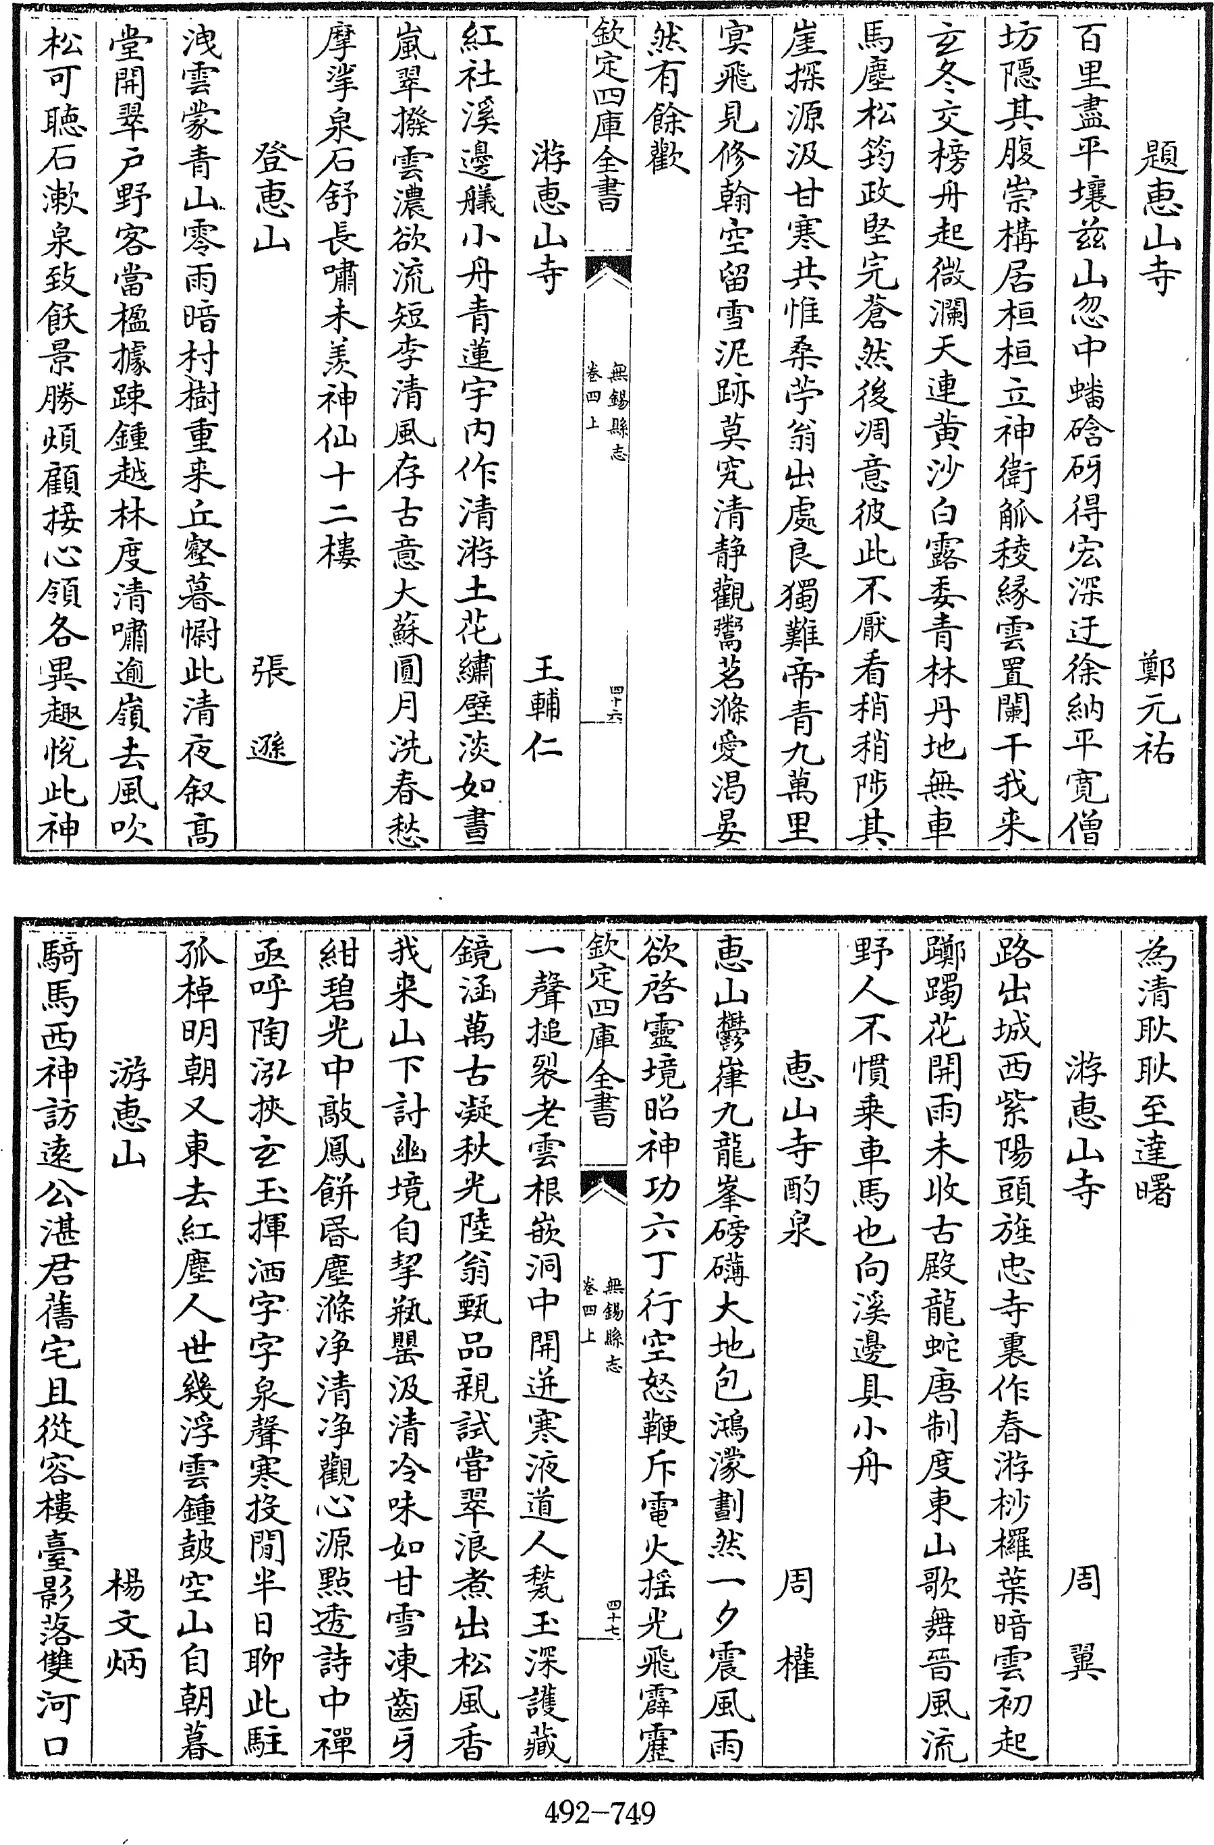 題惠山寺　鄭元祐
百里盡平壤兹山忽中蟠硲砑得宏深迂徐納平寛僧
坊隱其腹崇構居桓桓立神衛觚稜緣雲置闌干我来
玄冬交榜舟起微瀾天連黄沙白露委青林丹地無車
馬塵松筠政堅完蒼然後凋意彼此不厭看稍稍陟其
崖探源汲甘寒共惟桑苧翁出處良獨難帝青九萬里
寘飛見修翰空留雪泥跡莫究清静觀鬻茗滌愛渴晏
然有餘歡
欽定四庫全書　無錫縣志　卷四上　四十六
游惠山寺　王輔仁
紅社溪邊艤小舟青蓮宇内作清游土花繡壁淡如畫
嵐翠撥雲濃欲流短李清風存古意大蘇圓月洗春愁
摩挲泉石舒長嘯未羨神仙十二樓
登惠山　張遜
洩雲蒙青山零雨暗村樹重来丘壑暮慰此清夜叙高
堂開翠户野客當楹據踈鍾越林度清嘯逾嶺去風吹
松可聴石漱泉致飫景勝煩顧接心領各異趣悦此神
為清耿耿至達曙
游惠山寺　周翼
路出城西紫陽頭旌忠寺裏作春游桫欏葉暗雲初起
躑躅花開雨未收古殿龍蛇唐制度東山歌舞晉風流
野人不慣乗車馬也向溪邊具小舟
惠山寺酌泉　周權
惠山鬱嵂九龍峯磅礴大地包鴻濛劃然一夕震風雨
欲啓靈境昭神功六丁行空怒鞭斥電火揺光飛霹靂
欽定四庫全書　無錫縣志　卷四上　四十七
一聲搥裂老雲根嵌洞中開迸寒液道人甃玉深護藏
鏡涵萬古凝秋光陸翁甄品親試嘗翠浪煮出松風香
我来山下討幽境自挈瓶罌汲清冷味如甘雪凍齒牙
紺碧光中敲鳳餅昬塵滌净清净觀心源㸃透詩中禪
亟呼陶泓挾玄玉揮洒字字泉聲寒投閒半日聊此駐
孤棹明朝又東去紅塵人世幾浮雲鍾皷空山自朝暮
游惠山　楊文炳
騎馬西神訪遠公湛君舊宅且從容樓臺影落雙河口
492-749